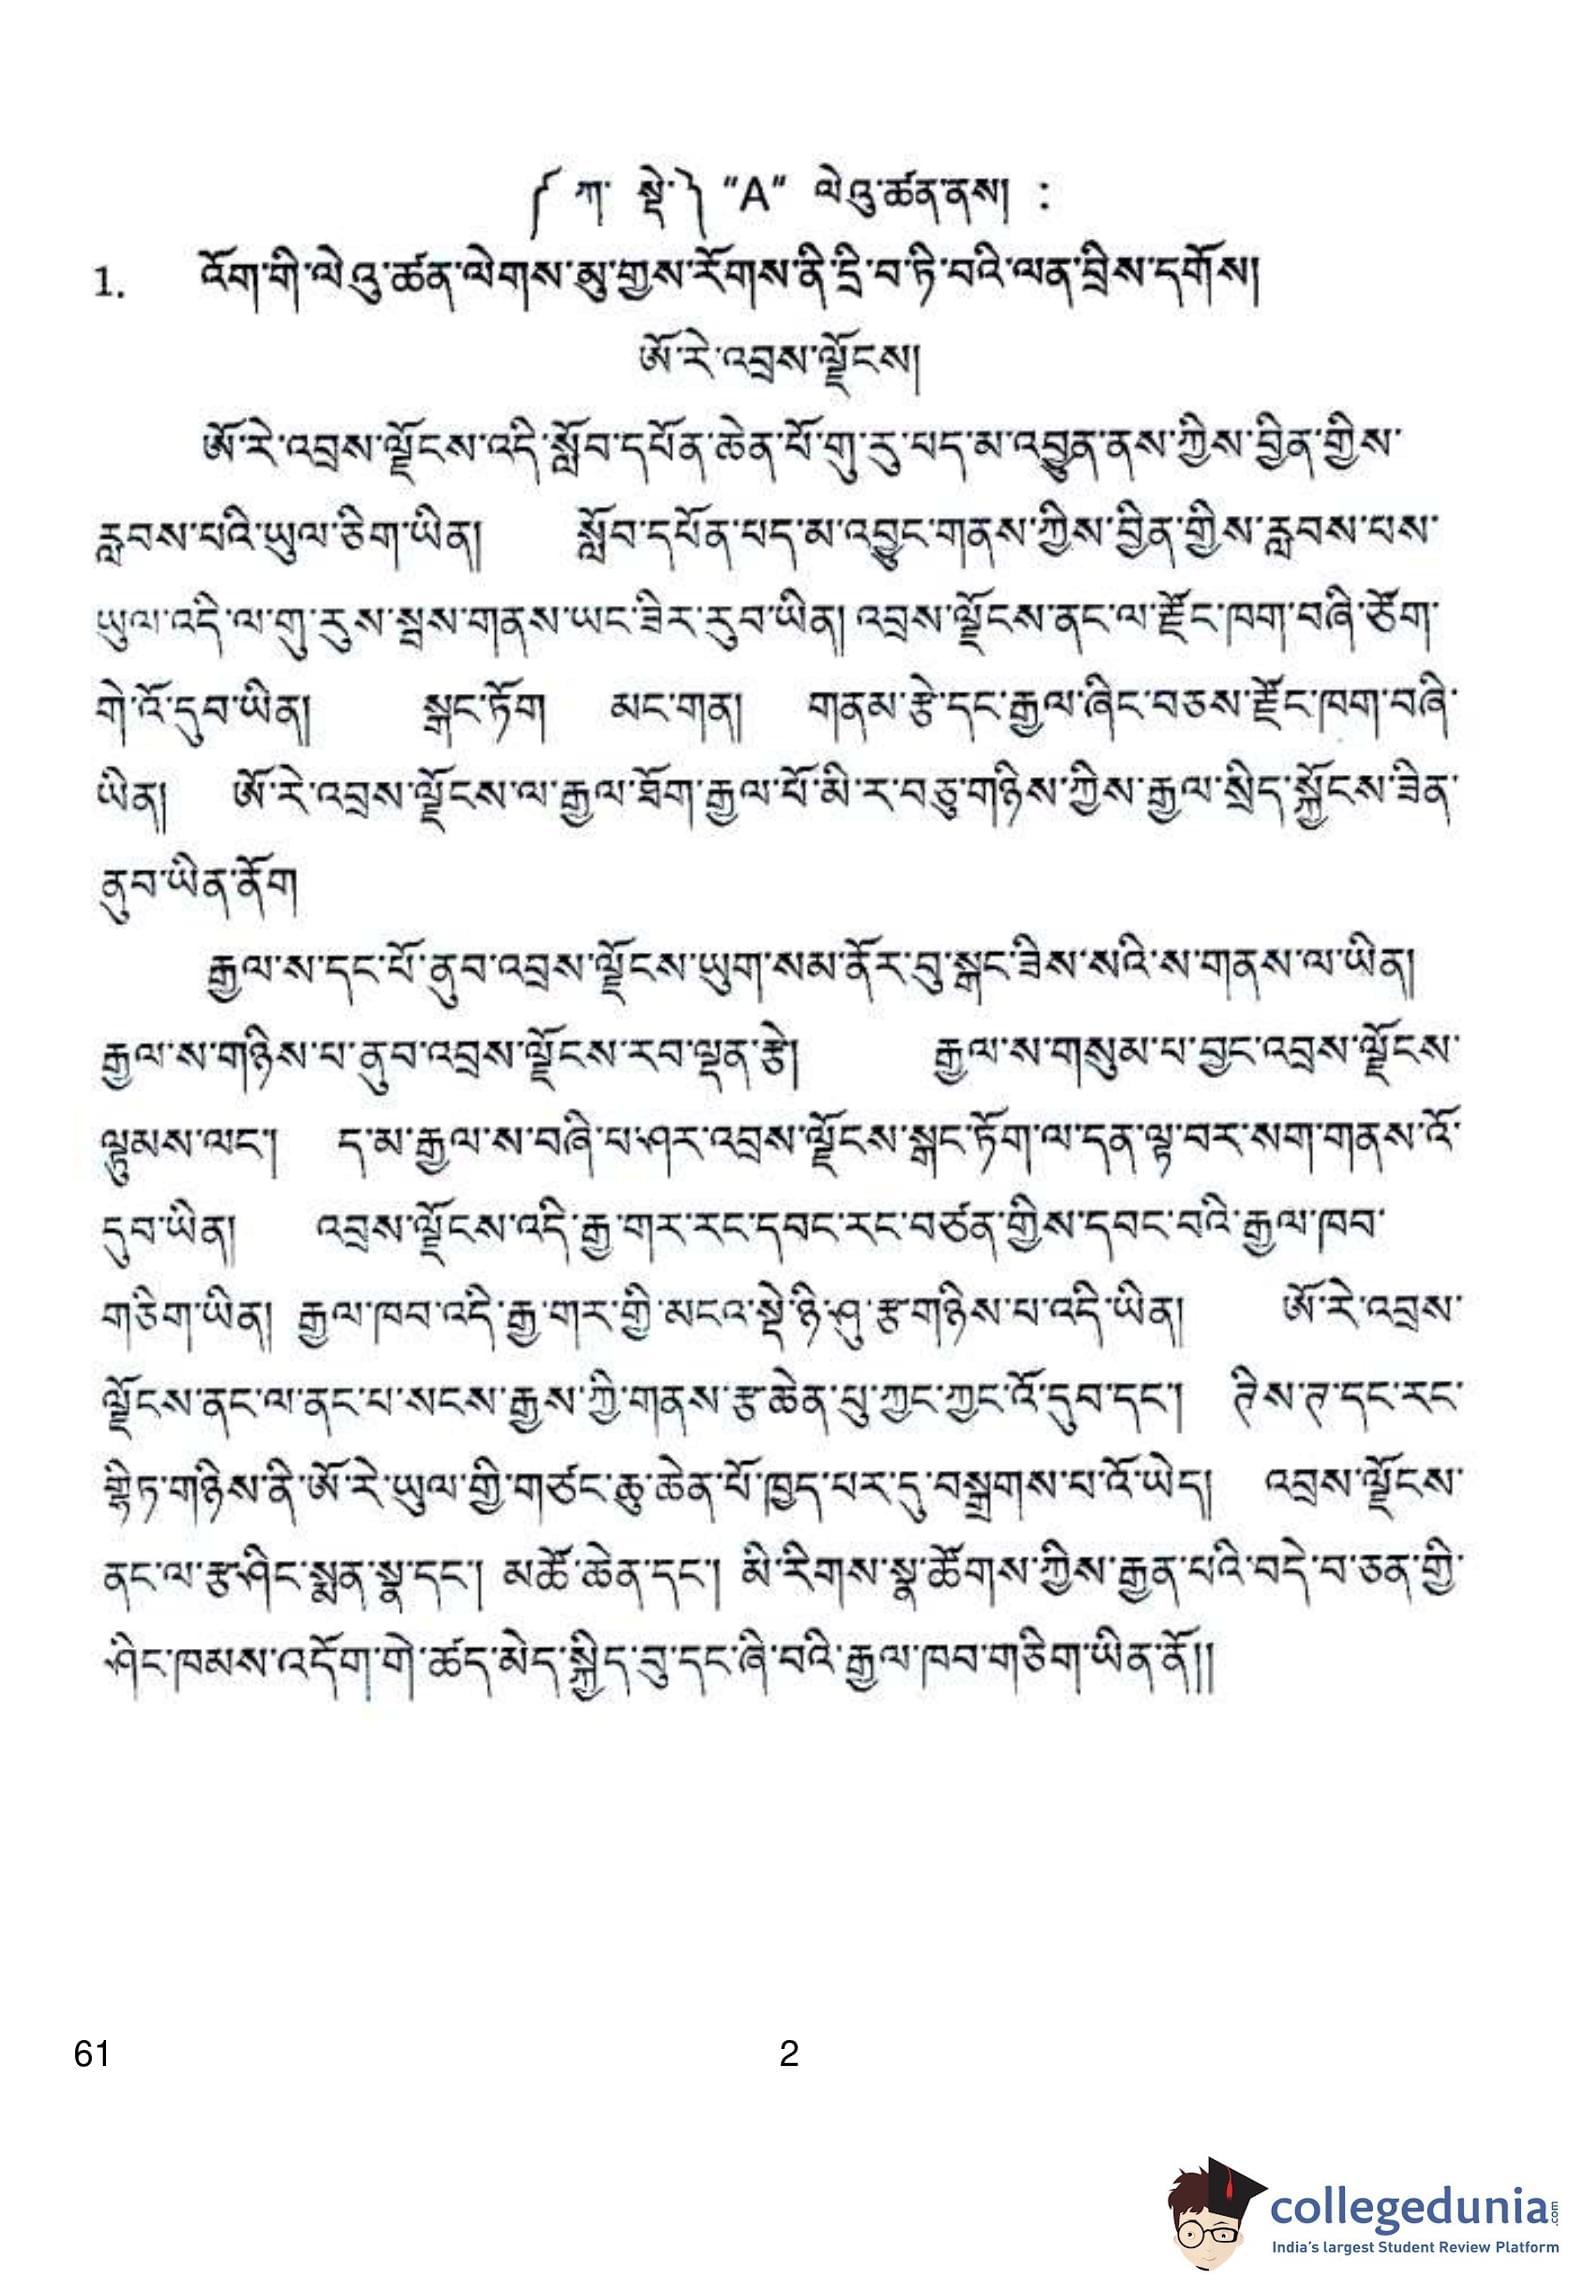 ༼ ཀ་ སྡེ་ ༽ "A" ལེའུ་ཚན་ནས། :
1. འོག་གི་ལེའུ་ཚན་ལེགས་མུ་གྱས་རོགས་ནི་དྲི་བ་ཏི་བའི་ལན་བྲིས་དགོས།
ཨོ་རེ་འབྲས་ལྗོངས།
ཨོ་རེ་འབྲས་ལྗོངས་འདི་སློབ་དཔོན་ཆེན་པོ་གུ་རུ་པད་མ་འབྱུན་ནས་ཀྱིས་བྱིན་གྱིས་
རླབས་པའི་ཡུལ་ཅིག་ཡིན། སློབ་དཔོན་པད་མ་འབྱུང་གནས་ཀྱིས་བྱིན་གྱིས་རླབས་པས་
ཡུལ་འདི་ལ་གུ་རུས་སྦས་གནས་ཡང་ཟེར་རུབ་ཡིན། འབྲས་ལྗོངས་ནང་ལ་རྫོང་ཁག་བཞི་ཅོག་
གེ་འོ་དུབ་ཡིན། སྒང་ཏོག མང་གན། གནམ་རྩེ་དང་རྒྱལ་ཞིང་བཅས་རྫོང་ཁག་བཞི་
ཡིན། ཨོ་རེ་འབྲས་ལྗོངས་ལ་རྒྱལ་ཐོག་རྒྱལ་པོ་མི་ར་བཅུ་གཉིས་ཀྱིས་རྒྱལ་སྲིད་སྐྱོངས་ཟིན་
ནུབ་ཡིན་ནོག
རྒྱལ་ས་དང་པོ་ནུབ་འབྲས་ལྗོངས་ཡུག་སམ་ནོར་བུ་སྒང་ཟིས་སའི་ས་གནས་ལ་ཡིན།
རྒྱལ་ས་གཉིས་པ་ནུབ་འབྲས་ལྗོངས་རབ་ལྡན་རྩེ། རྒྱལ་ས་གསུམ་པ་བྱང་འབྲས་ལྗོངས་
ལྟུམས་ལང་། ད་མ་རྒྱལ་ས་བཞི་པ་ཤར་འབྲས་ལྗོངས་སྒང་ཏོག་ལ་དན་ལྟ་བར་སག་གནས་འོ་
དུབ་ཡིན། འབྲས་ལྗོངས་འདི་རྒྱ་གར་རང་དབང་རང་བཙན་གྱིས་དབང་བའི་རྒྱལ་ཁབ་
གཅིག་ཡིན། རྒྱལ་ཁབ་འདི་རྒྱ་གར་གྱི་མངའ་སྡེ་ཉི་ཤུ་རྩ་གཉིས་པ་འདི་ཡིན། ཨོ་རེ་འབྲས་
ལྗོངས་ནང་ལ་ནང་པ་སངས་རྒྱས་ཀྱི་གནས་རྩ་ཆེན་པུ་ཀྱང་ཀྱང་འོ་དུབ་དང་། ཊིས་ཊ་དང་རང་
གཉིས་ནི་ཨོ་རེ་ཡུལ་གྱི་གཙང་ཆུ་ཆེན་པོ་ཁྱད་པར་དུ་བསྒྲགས་པ་འོ་ཡེད། འབྲས་ལྗོངས་
ནང་ལ་རྩ་ཤིང་སྨན་སྣ་དང་། མཚོ་ཆེན་དང་། མི་རིགས་སྣ་ཚོགས་ཀྱིས་རྒྱན་པའི་བདེ་བ་ཅན་གྱི་
ཤིང་ཁམས་འདོག་གེ་ཚད་མེད་སྐྱིད་བུ་དང་ཞི་བའི་རྒྱལ་ཁབ་གཅིག་ཡིན་ནོ།།
61 2
collegedunia.com
India's largest Student Review Platform